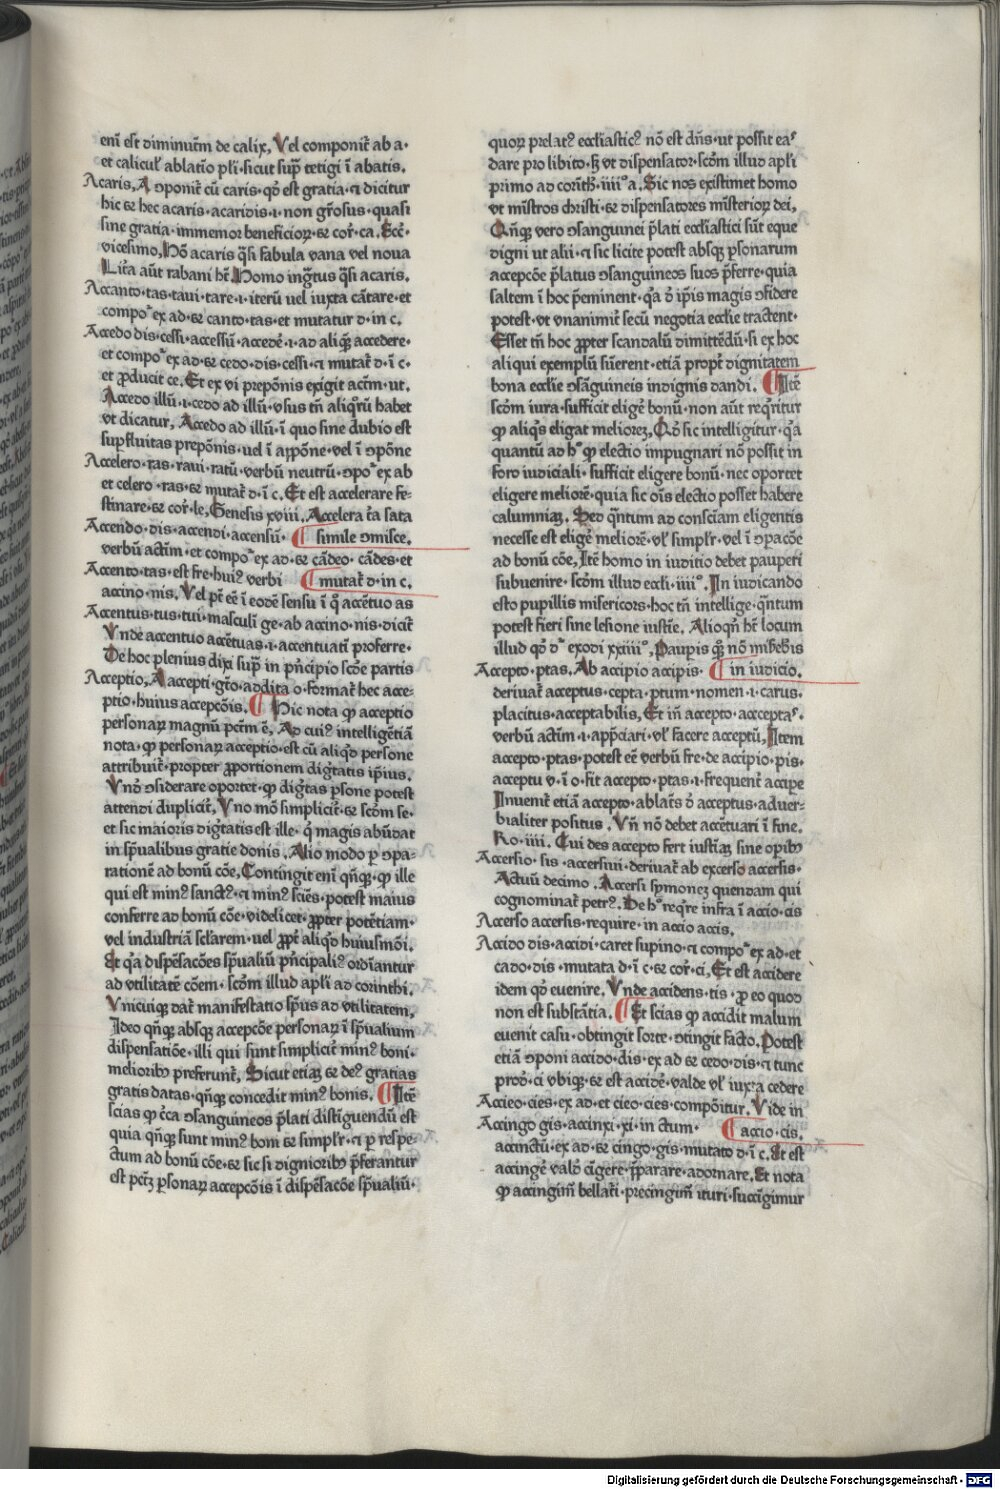 enī est diminutīm de calix, Vel componit̄ ab a·
et calicul̄ ablatīo pl̄i·sicut sup̄ tetigi ī abatis.
Acaris, A ɔponit̄ cū caris·qō est gratia·⁊ dicitur
hic ⁊ hec acaris·acaridis·i·non gr̄osus·quasi
sine gratia·immemor beneficioꝝ·⁊ cor̄·ca. Ecc̄·
vicesimo, Hō acaris q̄si fabula vana vel noua
Lit̄a aūt rabani hr̄. Homo ingᵗtus q̄si acaris.
Accanto·tas·taui·tare·i·iterū uel iuxta cātare·et
compoᵗ ex ad·⁊ canto·tas·et mutatur d·in c.
Accedo dis·cessi·accessū·accedē·i·ad aliqᷓ accedere·
et compoᵗ ex ad·⁊ cedo·dis·cessi·⁊ mutat̄ d·ī c·
et ꝓducit ce. Et ex vi prepōnis exigit actīm·ut.
Accedo illū·i·cedo ad illū·vsus tn̄ aliqn̄ū habet
vt dicatur, Accedo ad illū·ī quo sine dubio est
supfluitas prepōnis·uel ī appōne·vel ī ɔpōne
Accelero·ras·raui·ratū·verbū neutrū·ɔpoᵗ ex ab
et celero·ras·⁊ mutat̄ d·ī c. Et est accelerare fe-
stinare·⁊ cor̄·le, Genesis xviii. Accelera t̄a sata
Accendo·dis·accendi·accensū· ¶ simile ɔmisce.
verbū actīm·et compoᵗ ex ad·⁊ cādeo·cādes·et
Accento·tas·est fre·huiꝰ verbi ¶ mutat̄ d·in c.
accino·nis. Vel pt̄ eē ī eodē sensu ī q̄ accētuo as
Accentus·tus·tui·masculī ge·ab accino·nis·dicit̄
Vnde accentuo accētuas·i·accentuatī proferre·
De hoc plenius dixi sup̄ in pn̄cipio scōe partis
Acceptio, A accepti·gto·addita o·format̄ hec acce-
ptio·huius accepcōis. ¶ Hic nota ꝙ acceptio
personaꝝ magnū pctīm ē. Ad cuiꝰ intelligētiā
nota·ꝙ personaꝝ acceptio·est cū aliqd persone
attribuit̄·propter ꝓportionem digᵗtatis ip̄ius.
Vnō ɔsiderare oportet·ꝙ digᵗtas psone potest
attendi duplicit̄, Vno mō simplicit̄·⁊ scōm se·
et sic maioris digᵗtatis est ille·qͥ magis abūdat
in sp̄ualibus gratie donis. Alio modo p ɔpa-
rationē ad bonū cōe, Contingit enī qn̄qꝫ·ꝙ ille
qui est minꝰ sanctꝰ·⁊ minꝰ sciēs·potest maius
conferre ad bonū cōe·videlicet·ꝓpter potētiam·
vel industriā sc̄larem·uel ꝓpt̄ aliqd huiusmōi.
Et qᷓa dispēsacōes sp̄ualiū pn̄cipaliꝰ ordīantur
ad vtilitatē cōem·scōm illud apl̄i ad corinthi.
Vnicuiqꝫ dat̄ manifestatio sp̄us ad vtilitatem,
Ideo qn̄qꝫ absqꝫ accepcōe personaꝝ ī sp̄ualium
dispensatiōe·illi qui sunt simplicit̄ minꝰ boni·
melioribꝫ preferunt̄, Sicut etiaꝫ ⁊ deꝰ gratias
gratis datas·qn̄qꝫ concedit minꝰ bonis. ¶ Itē
scias ꝙ c̄ca ɔsanguineos p̄lati distiguendū est
quia qn̄qꝫ sunt minꝰ boni ⁊ simplr̄·⁊ p respe-
ctum ad bonū cōe·⁊ sic si dignioribꝫ p̄ferantur
est pctꝫ psonaꝝ accepcōis ī dispēsacōe sp̄ualiū·
quoꝝ prelatꝰ eccl̄iasticꝰ nō est dn̄s·ut possit eaˢ
dare pro libito·sꝫ vt dispensator·scōm illud apl̄i
primo ad corīth·iiii°a. Sic nos existimet homo
vt mīstros christi·⁊ dispensatores mīsterioꝝ dei,
Qn̄qꝫ vero ɔsanguinei p̄lati eccl̄iastici sūt eque
digni ut alii·⁊ sic licite potest absqꝫ psonarum
accepcōe p̄latus ɔsanguineos suos p̄ferre·quia
saltem ī hoc p̄eminent·qᷓa d̄ ip̄is magis ɔfidere
potest·vt vnanimit̄ secū negotia eccl̄ie tractent·
Esset tn̄ hoc ꝓpter scandalū dimittēdū·si ex hoc
aliqui exemplū sūerent·etiā propt̄ dignitatem
bona eccl̄ie ɔsāguineis indignis dandi. ¶ Itē
scōm iura·sufficit eligē bonū·non aūt reqͥritur
ꝙ aliqͥs eligat melioreꝫ, Qō sic intelligitur·qᷓa
quantū ad hᵒ ꝙ electio impugnari nō possit in
foro iudiciali·sufficit eligere bonū·nec oportet
eligere meliorē·quia sic oīs electio posset habere
calumniaꝫ. Sed qᷓntum ad consciam eligentis
necesse est eligē meliorē·vl̄ simplr̄·vel ī ɔpacōe
ad bonū cōe, Itē homo in iuditio debet pauperi
subuenire·scōm illud eccl̄i·iiii°. In iudicando
esto pupillis misericors·hoc tn̄ intellige·qᷓntum
potest fieri sine lesione iustīe. Alioqn̄ hr̄ locum
illud qō dʳ exodi xxiii°, Paupis qꝫ nō mīsebis
Accepto·ptas. Ab accipio accipis· ¶ in iudicio.
deriuat̄ acceptus·cepta·ptum·nomen·i·carus·
placitus·acceptabilis, Et in̄ accepto·acceptaˢ·
verbū actīm·i·app̄ciari·vl̄ facere acceptū, Item
accepto·ptas·potest eē verbū fre·de accipio·pis·
acceptu·v·ī o·fit accepto·ptas·i·frequent̄ accipe
Inuenit̄ etiā accepto·ablatꝰ d̄ acceptus·aduer-
bialiter positus. Vn̄ nō debet accētuari ī fine.
Ro·iiii. Cui des accepto fert iustīaꝫ sine opibꝫ
Accersio·sis·accersiui·deriuat̄ ab excerso accersis·
Actuū decimo. Accersi symoneꝫ quendam qui
cognominat̄ petrꝰ. De hᵒ reqͥre infra ī accio·cis
Accerso accersis·require·in accio accis.
Accido dis·accidi·caret supino·⁊ compoᵗ ex ad·et
cado·dis·mutata d·ī c·⁊ cor̄·ci, Et est accidere
idem qō euenire, Vnde accidens·tis·ꝓ eo quod
non est substātia. ¶ Et scias ꝙ accidit malum
euenit casu·obtingit sorte·ɔtingit facto. Potest
etiā ɔponi accido·dis·ex ad ⁊ cedo·dis·⁊ tunc
prod·ci vbiqꝫ·⁊ est accidē·valde vl̄ iuxta cedere
Accieo·cies·ex ad·et cieo·cies·compōitur. Vide in
Accingo gis·accinxi·xi·in ctum· ¶ accio·cis.
accinctū·ex ad·⁊ cingo·gis·mutato d·ī c. Et est
accingē valō cīgere·p̄parare·adornare. Et nota
ꝙ accingim̄ bellat̄i·precingim̄ ituri·succīgimur